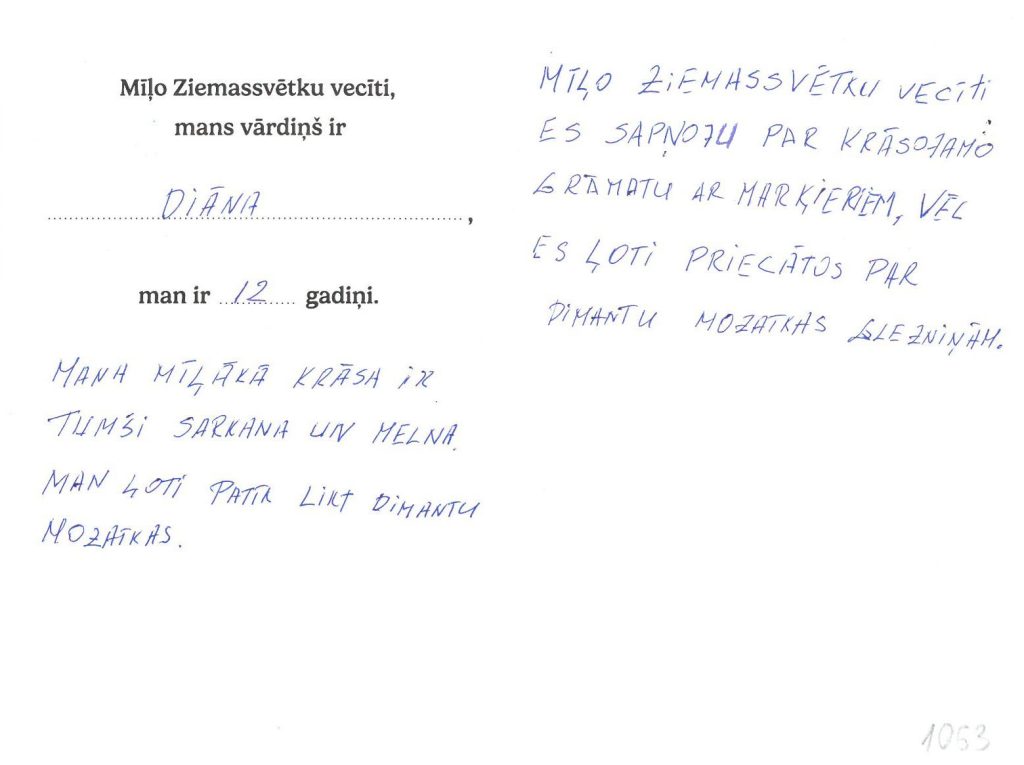 Mīļo Ziemassvētku vecīti,
mans vārdiņš ir
DIĀNA,
man ir 12 gadiņi.
MANA MĪĻĀKĀ KRĀSA IR
TUMŠI SARKANA UN MELNA.
MAN ĻOTI PATĪK LIKT DIMANTU
MOZAĪKAS.
MĪĻO ZIEMASSVĒTKU VECĪTI
ES SAPŅOJU PAR KRĀSOJAMO
GRĀMATU AR MARĶIERIEM, VĒL
ES ĻOTI PRIECĀTOS PAR
DIMANTU MOZAĪKAS GLEZNIŅĀM.
1053